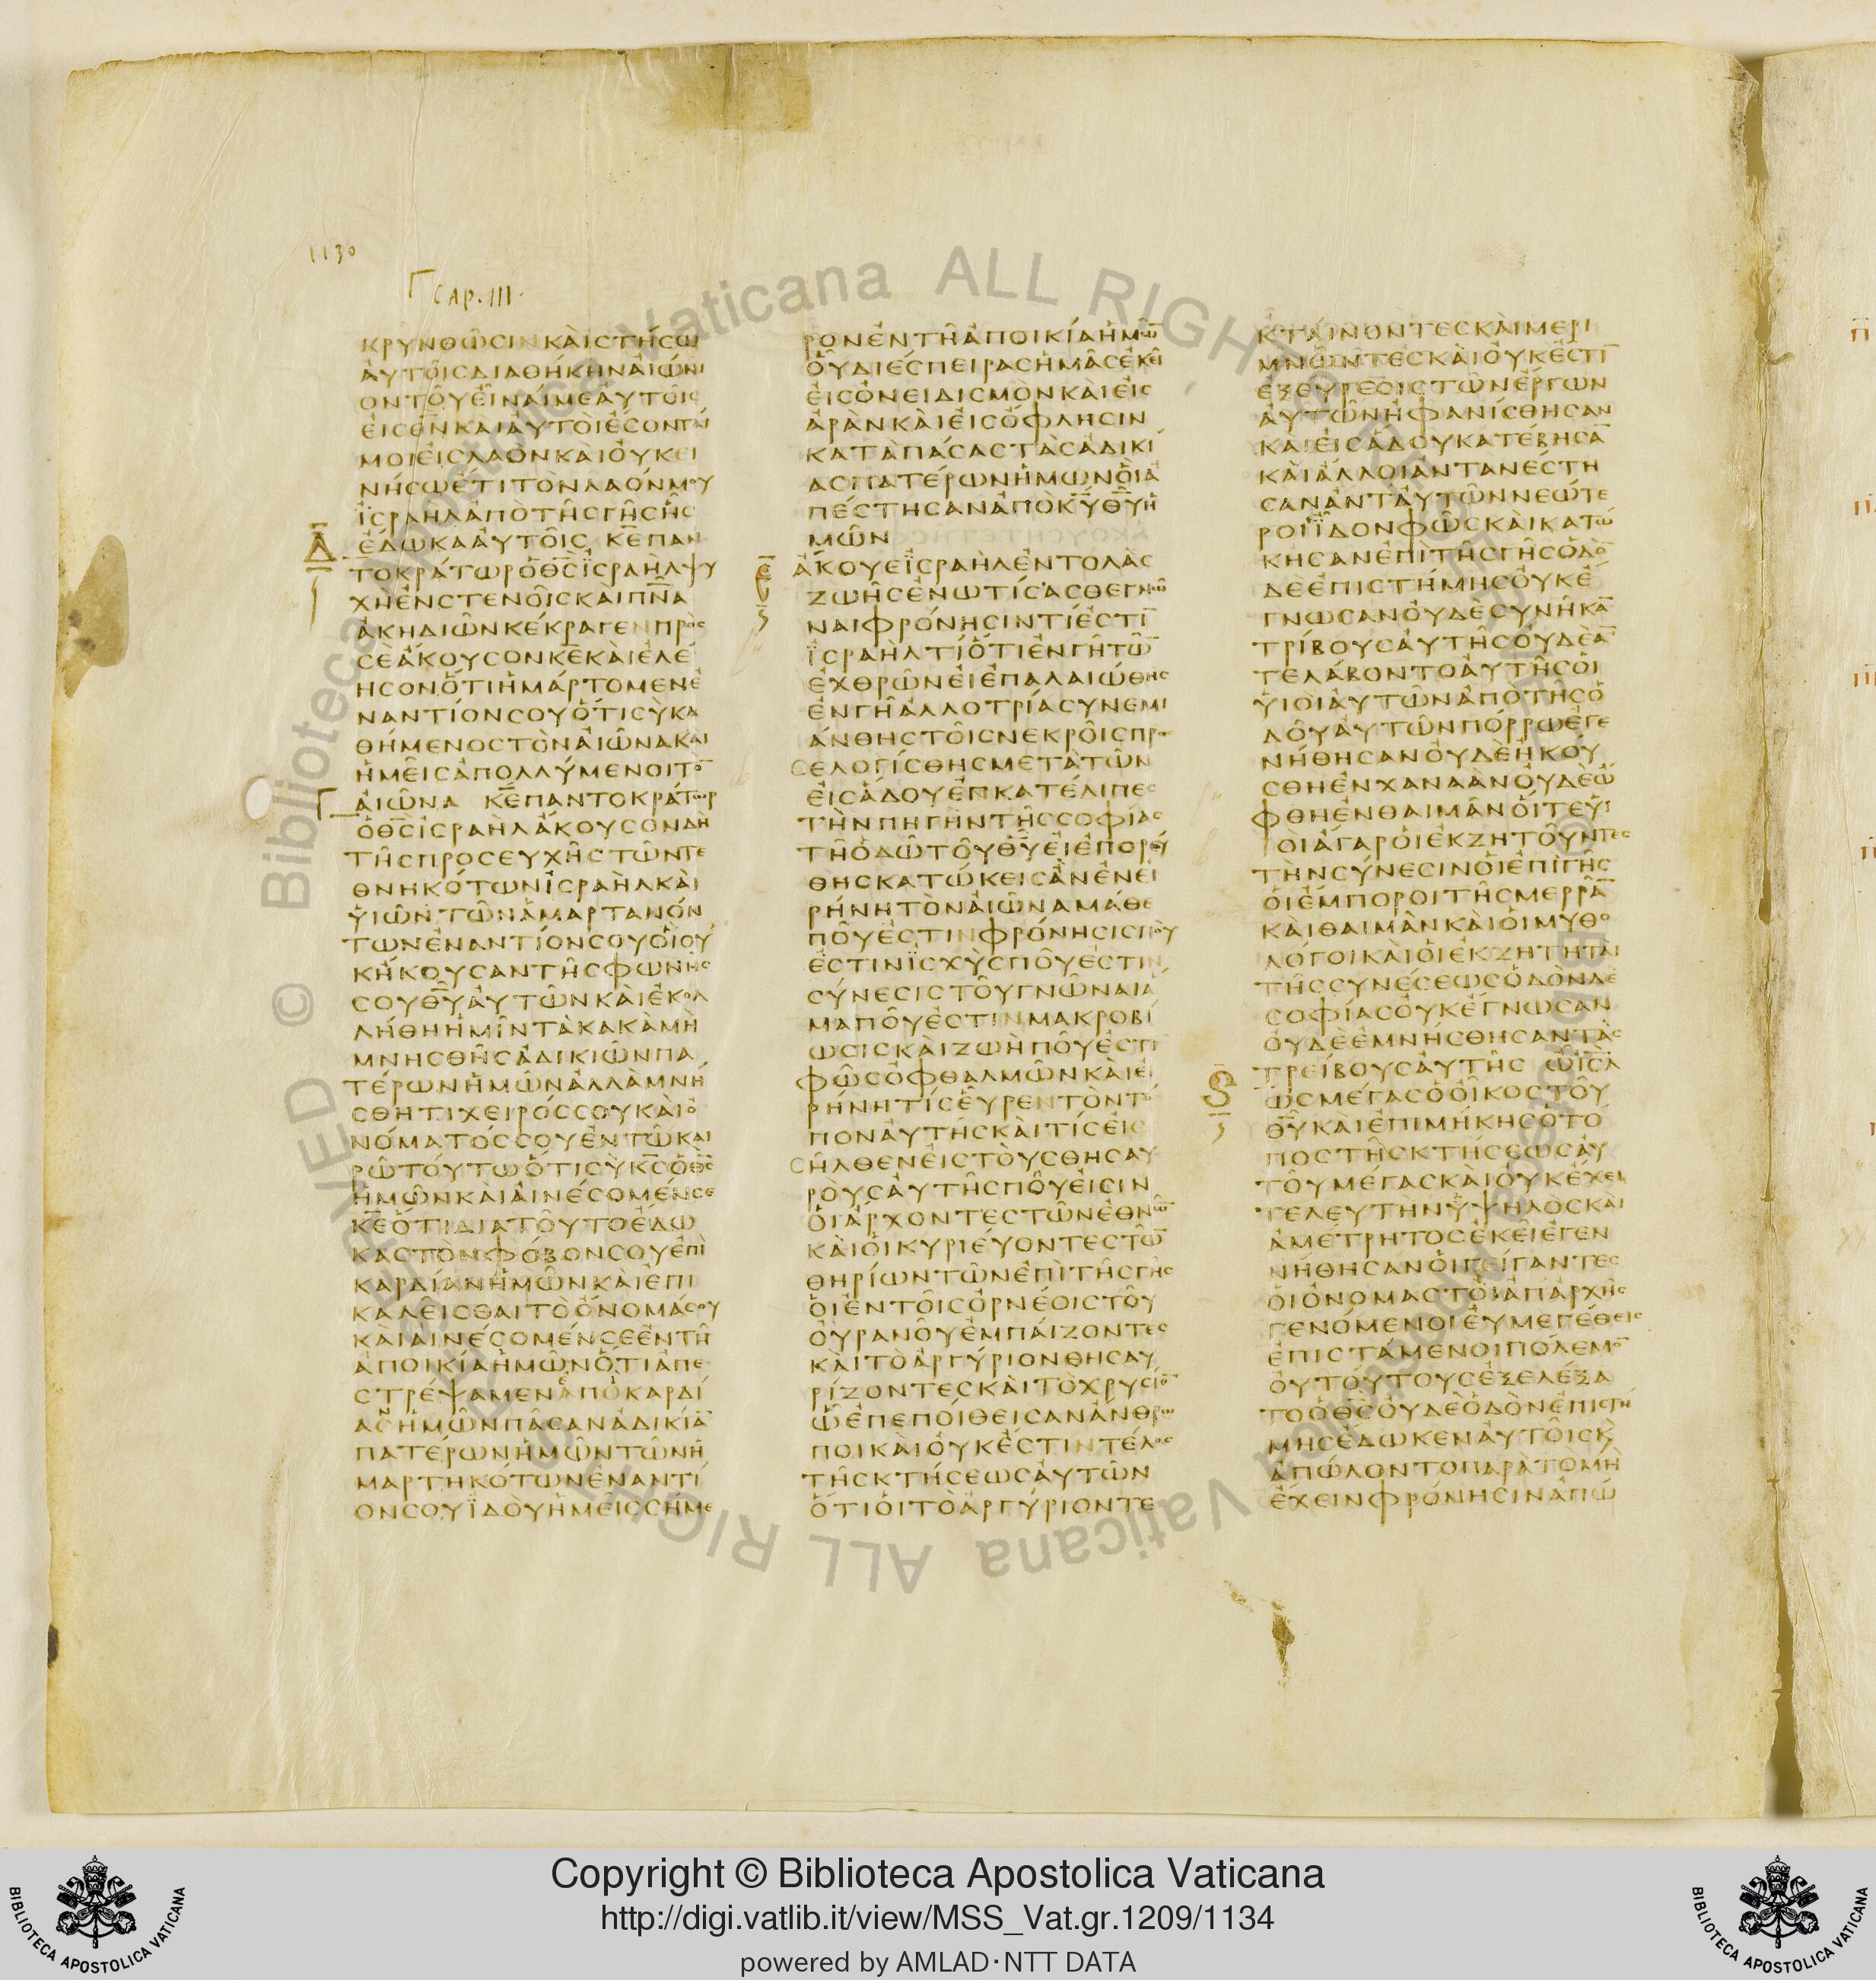 1130
CAP. III.
ΚΡΥΝΘΩϹΙΝΚΑΙϹΤΗϹΩ
ΑΥΤΟΙϹΔΙΑΘΗΚΗΝΑΙΩΝΙ
ΟΝΤΟΥΕΙΝΑΙΜΕΑΥΤΟΙϹ
ΕΙϹΘΝΚΑΙΑΥΤΟΙΕϹΟΝΤΑΙ
ΜΟΙΕΙϹΛΑΟΝΚΑΙΟΥΚΕΙ
ΝΗϹΩΕΤΙΤΟΝΛΑΟΝΜΟΥ
ΙϹΡΑΗΛΑΠΟΤΗϹΓΗϹΗϹ
Δ ΕΔΩΚΑΑΥΤΟΙϹ Κ̅Ε̅ΠΑΝ
ΤΟΚΡΑΤΩΡΟΘ̅Ϲ̅ΙϹΡΑΗΛΨΥ
ΧΗΕΝϹΤΕΝΟΙϹΚΑΙΠ̅Ν̅Α̅
ΑΚΗΔΙΩΝΚΕΚΡΑΓΕΝΠΡΟϹ
ϹΕΑΚΟΥϹΟΝΚ̅Ε̅ΚΑΙΕΛΕ
ΗϹΟΝΟΤΙΗΜΑΡΤΟΜΕΝΕ
ΝΑΝΤΙΟΝϹΟΥΟΤΙϹΥΚΑ
ΘΗΜΕΝΟϹΤΟΝΑΙΩΝΑΚΑΙ
ΗΜΕΙϹΑΠΟΛΛΥΜΕΝΟΙΤΟ̅
ΑΙΩΝΑ Κ̅Ε̅ΠΑΝΤΟΚΡΑΤΩΡ
ΟΘ̅Ϲ̅ΙϹΡΑΗΛΑΚΟΥϹΟΝΔΗ
ΤΗϹΠΡΟϹΕΥΧΗϹΤΩΝΤΕ
ΘΝΗΚΟΤΩΝΙϹΡΑΗΛΚΑΙ
ΥΙΩΝΤΩΝΑΜΑΡΤΑΝΟΝ
ΤΩΝΕΝΑΝΤΙΟΝϹΟΥΟΙΟΥ
ΚΗΚΟΥϹΑΝΤΗϹΦΩΝΗϹ
ϹΟΥΘ̅Υ̅ΑΥΤΩΝΚΑΙΕΚΟΛ
ΛΗΘΗΗΜΙΝΤΑΚΑΚΑΜΗ
ΜΝΗϹΘΗϹΑΔΙΚΙΩΝΠΑ
ΤΕΡΩΝΗΜΩΝΑΛΛΑΜΝΗ
ϹΘΗΤΙΧΕΙΡΟϹϹΟΥΚΑΙΟ
ΝΟΜΑΤΟϹϹΟΥΕΝΤΩΚΑΙ
ΡΩΤΟΥΤΩΟΤΙϹΥΚ̅Ϲ̅ΟΘ̅Ϲ̅
ΗΜΩΝΚΑΙΑΙΝΕϹΟΜΕΝϹΕ
Κ̅Ε̅ΟΤΙΔΙΑΤΟΥΤΟΕΔΩ
ΚΑϹΤΟΝΦΟΒΟΝϹΟΥΕΠΙ
ΚΑΡΔΙΑΝΗΜΩΝΚΑΙΕΠΙ
ΚΑΛΕΙϹΘΑΙΤΟΟΝΟΜΑϹΟΥ
ΚΑΙΑΙΝΕϹΟΜΕΝϹΕΕΝΤΗ
ΑΠΟΙΚΙΑΗΜΩΝΟΤΙΑΠΕ
ϹΤΡΕΨΑΜΕΝΑΠΟΚΑΡΔΙ
ΑϹΗΜΩΝΠΑϹΑΝΑΔΙΚΙΑ̅
ΠΑΤΕΡΩΝΗΜΩΝΤΩΝΗ
ΜΑΡΤΗΚΟΤΩΝΕΝΑΝΤΙ
ΟΝϹΟΥΙΔΟΥΗΜΕΙϹϹΗΜΕ
ΡΟΝΕΝΤΗΑΠΟΙΚΙΑΗΜΩ̅
ΟΥΔΙΕϹΠΕΙΡΑϹΗΜΑϹΕΚΕΙ
ΕΙϹΟΝΕΙΔΙϹΜΟΝΚΑΙΕΙϹ
ΑΡΑΝΚΑΙΕΙϹΟΦΛΗϹΙΝ
ΚΑΤΑΠΑϹΑϹΤΑϹΑΔΙΚΙ
ΑϹΠΑΤΕΡΩΝΗΜΩΝΟΙΑ
ΠΕϹΤΗϹΑΝΑΠΟΚ̅Υ̅Θ̅Υ̅Η
ΜΩΝ
Ε ΑΚΟΥΕΙϹΡΑΗΛΕΝΤΟΛΑϹ
ΖΩΗϹΕΝΩΤΙϹΑϹΘΕΓΝΩ
ΝΑΙΦΡΟΝΗϹΙΝΤΙΕϹΤΙ̅
ΙϹΡΑΗΛΤΙΟΤΙΕΝΓΗΤΩ̅
ΕΧΘΡΩΝΕΙΕΠΑΛΑΙΩΘΗϹ
ΕΝΓΗΑΛΛΟΤΡΙΑϹΥΝΕΜΙ
ΑΝΘΗϹΤΟΙϹΝΕΚΡΟΙϹΠΡΟ
ϹΕΛΟΓΙϹΘΗϹΜΕΤΑΤΩΝ
ΕΙϹΑΔΟΥΕΝΚΑΤΕΛΙΠΕϹ
ΤΗΝΠΗΓΗΝΤΗϹϹΟΦΙΑϹ
ΤΗΟΔΩΤΟΥΘ̅Υ̅ΕΙΕΠΟΡΕΥ
ΘΗϹΚΑΤΩΚΕΙϹΑΝΕΝΕΙ
ΡΗΝΗΤΟΝΑΙΩΝΑΜΑΘΕ
ΠΟΥΕϹΤΙΝΦΡΟΝΗϹΙϹΠΟΥ
ΕϹΤΙΝΙϹΧΥϹΠΟΥΕϹΤΙΝ
ϹΥΝΕϹΙϹΤΟΥΓΝΩΝΑΙΑ
ΜΑΠΟΥΕϹΤΙΝΜΑΚΡΟΒΙ
ΩϹΙϹΚΑΙΖΩΗΠΟΥΕϹΤΙ
ΦΩϹΟΦΘΑΛΜΩΝΚΑΙΕΙ
ΡΗΝΗΤΙϹΕΥΡΕΝΤΟΝΤΟ
ΠΟΝΑΥΤΗϹΚΑΙΤΙϹΕΙϹ
ΗΛΘΕΝΕΙϹΤΟΥϹΘΗϹΑΥ
ΡΟΥϹΑΥΤΗϹΠΟΥΕΙϹΙΝ
ΟΙΑΡΧΟΝΤΕϹΤΩΝΕΘΝΩ̅
ΚΑΙΟΙΚΥΡΙΕΥΟΝΤΕϹΤΩ̅
ΘΗΡΙΩΝΤΩΝΕΠΙΤΗϹΓΗϹ
ΟΙΕΝΤΟΙϹΟΡΝΕΟΙϹΤΟΥ
ΟΥΡΑΝΟΥΕΜΠΑΙΖΟΝΤΕϹ
ΚΑΙΤΟΑΡΓΥΡΙΟΝΘΗϹΑΥ
ΡΙΖΟΝΤΕϹΚΑΙΤΟΧΡΥϹΙΟ̅
ΩΕΠΕΠΟΙΘΕΙϹΑΝΑΝΘΡΩ
ΠΟΙΚΑΙΟΥΚΕϹΤΙΝΤΕΛΟϹ
ΤΗϹΚΤΗϹΕΩϹΑΥΤΩΝ
ΟΤΙΟΙΤΟΑΡΓΥΡΙΟΝΤΕ
ΚΤΑΙΝΟΝΤΕϹΚΑΙΜΕΡΙ
ΜΝΩΝΤΕϹΚΑΙΟΥΚΕϹΤΙ̅
ΕΞΕΥΡΕϹΙϹΤΩΝΕΡΓΩΝ
ΑΥΤΩΝΗΦΑΝΙϹΘΗϹΑΝ
ΚΑΙΕΙϹΑΔΟΥΚΑΤΕΒΗϹΑ̅
ΚΑΙΑΛΛΟΙΑΝΤΑΝΕϹΤΗ
ϹΑΝΑΝΤΑΥΤΩΝΝΕΩΤΕ
ΡΟΙΙΔΟΝΦΩϹΚΑΙΚΑΤΩ
ΚΗϹΑΝΕΠΙΤΗϹΓΗϹΟΔΟ̅
ΔΕΕΠΙϹΤΗΜΗϹΟΥΚΕ
ΓΝΩϹΑΝΟΥΔΕϹΥΝΗΚΑ̅
ΤΡΙΒΟΥϹΑΥΤΗϹΟΥΔΕΑ̅
ΤΕΛΑΒΟΝΤΟΑΥΤΗϹΟΙ
ΥΙΟΙΑΥΤΩΝΑΠΟΤΗϹΟ
ΔΟΥΑΥΤΩΝΠΟΡΡΩΕΓΕ
ΝΗΘΗϹΑΝΟΥΔΕΗΚΟΥ
ϹΘΗΕΝΧΑΝΑΑΝΟΥΔΕΩ
ΦΘΗΕΝΘΑΙΜΑΝΟΙΤΕΥΙ
ΟΙΑΓΑΡΟΙΕΚΖΗΤΟΥΝΤΕϹ
ΤΗΝϹΥΝΕϹΙΝΟΙΕΠΙΓΗϹ
ΟΙΕΜΠΟΡΟΙΤΗϹΜΕΡΡΑ̅
ΚΑΙΘΑΙΜΑΝΚΑΙΟΙΜΥΘΟ
ΛΟΓΟΙΚΑΙΟΙΕΚΖΗΤΗΤΑΙ
ΤΗϹϹΥΝΕϹΕΩϹΟΔΟΝΔΕ
ϹΟΦΙΑϹΟΥΚΕΓΝΩϹΑΝ
ΟΥΔΕΕΜΝΗϹΘΗϹΑΝΤΑϹ
ΤΡΕΙΒΟΥϹΑΥΤΗϹ ΩΙ̅Ϲ̅Λ̅
ΩϹΜΕΓΑϹΟΟΙΚΟϹΤΟΥ
Θ̅Υ̅ΚΑΙΕΠΙΜΗΚΗϹΟΤΟ
ΠΟϹΤΗϹΚΤΗϹΕΩϹΑΥ
ΤΟΥΜΕΓΑϹΚΑΙΟΥΚΕΧΕΙ
ΤΕΛΕΥΤΗΝΥΨΗΛΟϹΚΑΙ
ΑΜΕΤΡΗΤΟϹΕΚΕΙΕΓΕΝ
ΝΗΘΗϹΑΝΟΙΓΕΙΓΑΝΤΕϹ
ΟΙΟΝΟΜΑϹΤΟΙΑΠΑΡΧΗϹ
ΓΕΝΟΜΕΝΟΙΕΥΜΕΓΕΘΕΙϹ
ΕΠΙϹΤΑΜΕΝΟΙΠΟΛΕΜΟ̅
ΟΥΤΟΥΤΟΥϹΕΞΕΛΕΞΑ
ΤΟΟΘ̅Ϲ̅ΟΥΔΕΟΔΟΝΕΠΙϹΤΗ
ΜΗϹΕΔΩΚΕΝΑΥΤΟΙϹΚ
ΑΠΩΛΟΝΤΟΠΑΡΑΤΟΜΗ
ΕΧΕΙΝΦΡΟΝΗϹΙΝΑΠΩ
Copyright © Biblioteca Apostolica Vaticana
http://digi.vatlib.it/view/MSS_Vat.gr.1209/1134
powered by AMLAD·NTT DATA
BIBLIOTECA APOSTOLICA VATICANA
BIBLIOTECA APOSTOLICA VATICANA